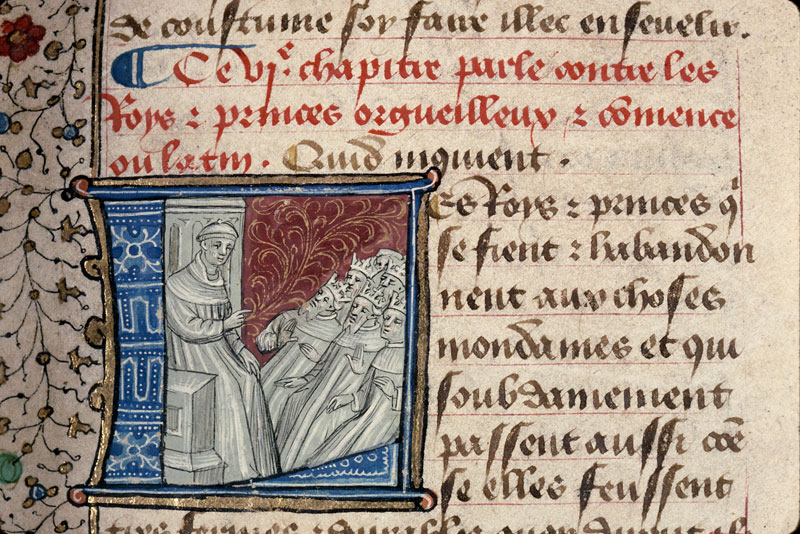 de coustume soy faire illec ensevelir.
¶ Ce vi.e chapitre parle contre les
Roys ⁊ princes orgueilleux ⁊ cōmence
ou latin. Quid inquient.
Les Roys ⁊ princes q̄
se fient ⁊ habandon
nent aux choses
mondaines et qui
soubdainement
passent aussi cōe
se elles feussent